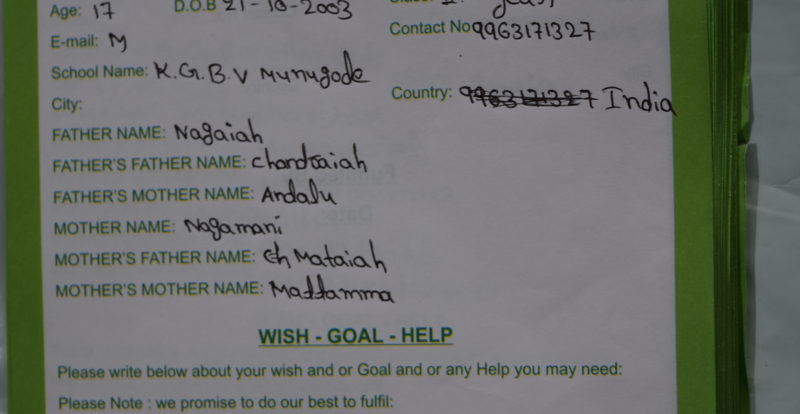 Age: 17 D.O.B 21-10-2003
E-mail: M Contact No 9963171327
School Name: K.G.B.V Munugode
City: Country: 9963171327 India
FATHER NAME: Nagaiah
FATHER'S FATHER NAME: Chandraiah
FATHER'S MOTHER NAME: Andalu
MOTHER NAME: Nagamani
MOTHER'S FATHER NAME: Ch Mataiah
MOTHER'S MOTHER NAME: Mattamma
WISH - GOAL - HELP
Please write below about your wish and or Goal and or any Help you may need:
Please Note : we promise to do our best to fulfil: